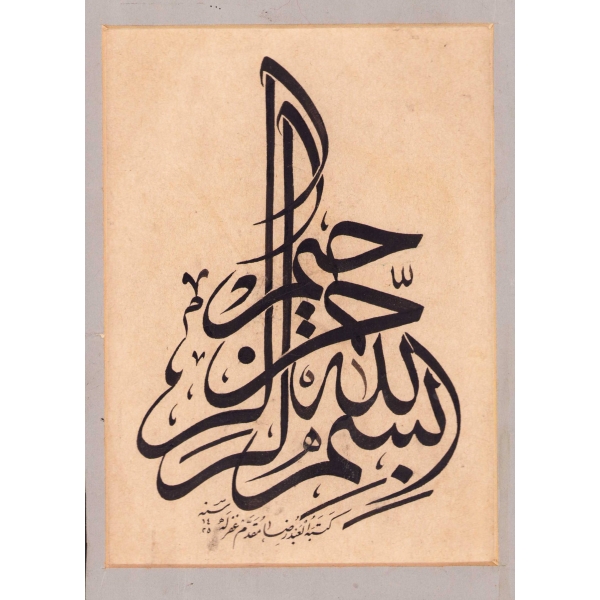 بسم الله الرحمن الرحيم
كتبه العبد رضا مقدم غفر له سنه ١٤٢٥